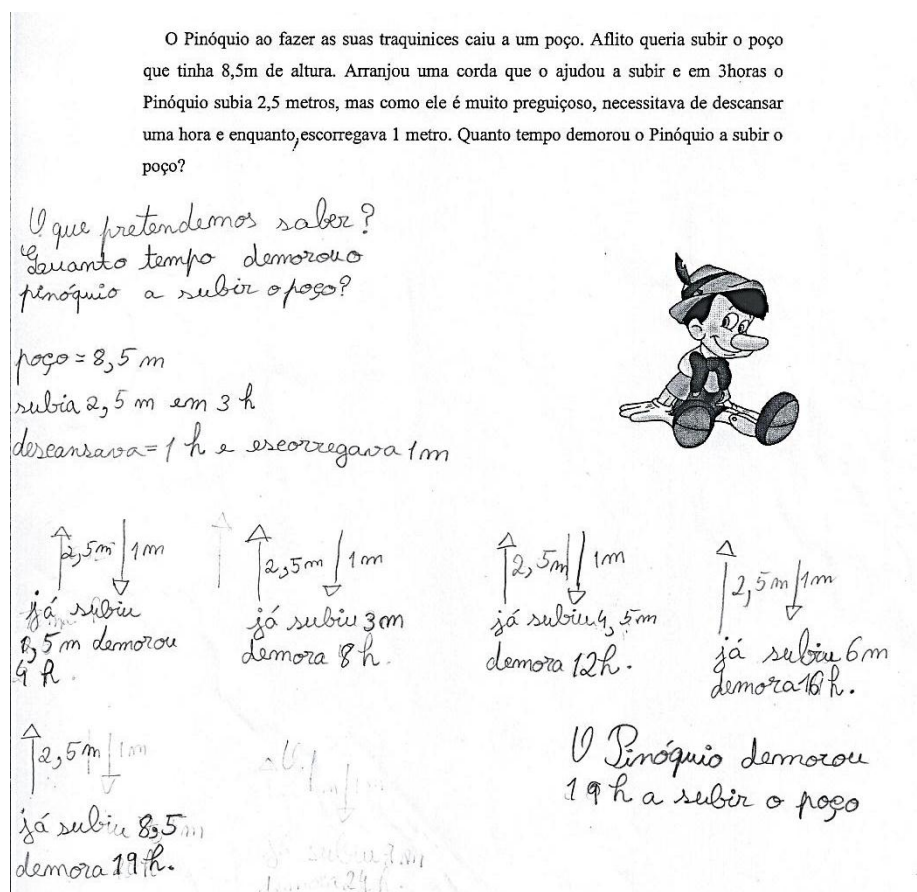 O Pinóquio ao fazer as suas traquinices caiu a um poço. Aflito queria subir o poço
que tinha 8,5m de altura. Arranjou uma corda que o ajudou a subir e em 3horas o
Pinóquio subia 2,5 metros, mas como ele é muito preguiçoso, necessitava de descansar
uma hora e enquanto,escorregava 1 metro. Quanto tempo demorou o Pinóquio a subir o
poço?
O que pretendemos saber?
Quanto tempo demorou o
pinóquio a subir o poço?
poço = 8,5 m
subia 2,5 m em 3 h
descansava = 1 h e escorregava 1m
2,5m 1m
já subiu
1,5 m demorou
4 h.
2,5m 1m
já subiu 3m
demora 8h.
2,5m 1m
já subiu 4,5m
demora 12h.
2,5m 1m
já subiu 6m
demora 16h.
2,5m 1m
já subiu 8,5m
demora 19h.
O Pinóquio demorou
19h a subir o poço